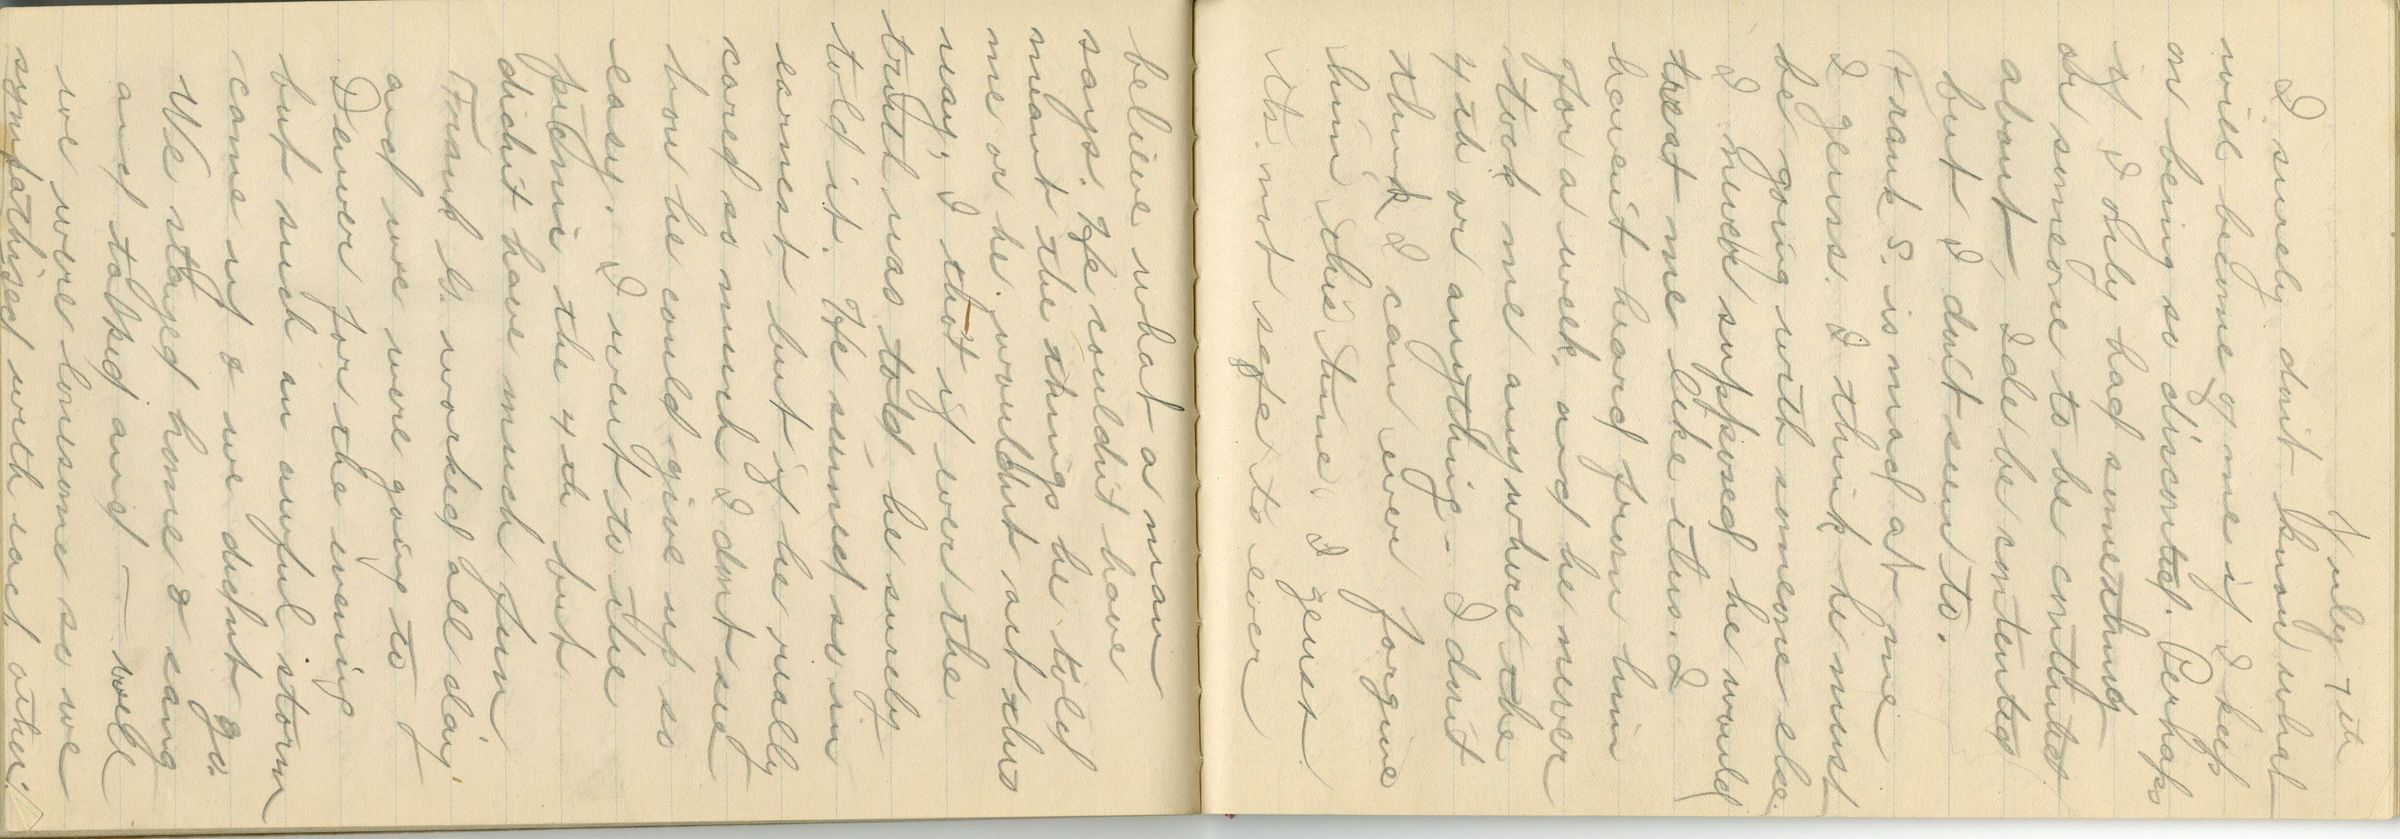 July 7th
I surely don't know what
will become of me if I keep
on being so discontet. Perhaps
if I only had something
or someone to be contented
about Ide be contented
but I don't seem to.
Frank S. is mad at me
I guess. I think he must
be going with someone else.
I never supposed he would
treat me like this. I
haven't heard from him
for a week and he never
took me anywhere the
4th or anything. I don't
think I can ever forgive
him this time. I guess
its not safe to ever
believe what a man
says. He couldn't have
meant the things he told
me or he wouldnt act this
way. I thot if ever the
truth was told he surely
told it. He seemed so in
earnest but if he really
cared so much I dont see
how he could give up so
easy. I went to the
picnic the 4th but
didn't have much fun
Frank G. worked all day
and we were going to
Dewer for the evening
but such an awful storm
came up & we didnt go.
We stayed home & sang
and talked and — well
we were lonesome so we
sympathized with each other.